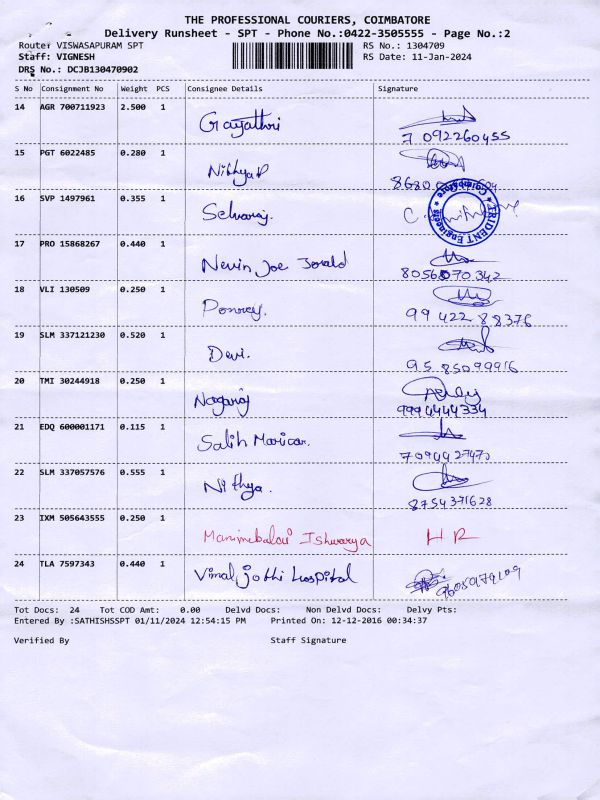 THE PROFESSIONAL COURIERS, COIMBATORE
Delivery Runsheet - SPT - Phone No.:0422-3505555 - Page No.:2
Router VISWASAPURAM SPT RS No.: 1304709
Staff: VIGNESH RS Date: 11-Jan-2024
DRS No.: DCJB130470902
S No Consignment No Weight PCS Consignee Details Signature
14 AGR 700711923 2.500 1 Gayathri
7092260455
15 PGT 6022485 0.280 1 Nithya P
8680
16 SVP 1497961 0.355 1 Selvaraj.
TRIDENT Engineering Coimbatore
17 PRO 15868267 0.440 1 Nevin Joe Jerald
8056070342
18 VLI 130509 0.250 1 Ponraj.
9942288376
19 SLM 337121230 0.520 1 Devi.
9585099916
20 TMI 30244918 0.250 1 Nagaraj
9994444334
21 EDQ 600001171 0.115 1 Salih Maricar.
22 SLM 337057576 0.555 1 Nithya.
8754371628
23 IXM 505643555 0.250 1 Manimekalai Ishwarya HR
24 TLA 7597343 0.440 1 Vimal jothi hospital
Tot Docs: 24 Tot COD Amt: 0.00 Delvd Docs: Non Delvd Docs: Delvy Pts:
Entered By :SATHISHSSPT 01/11/2024 12:54:15 PM Printed On: 12-12-2016 00:34:37
Verified By Staff Signature